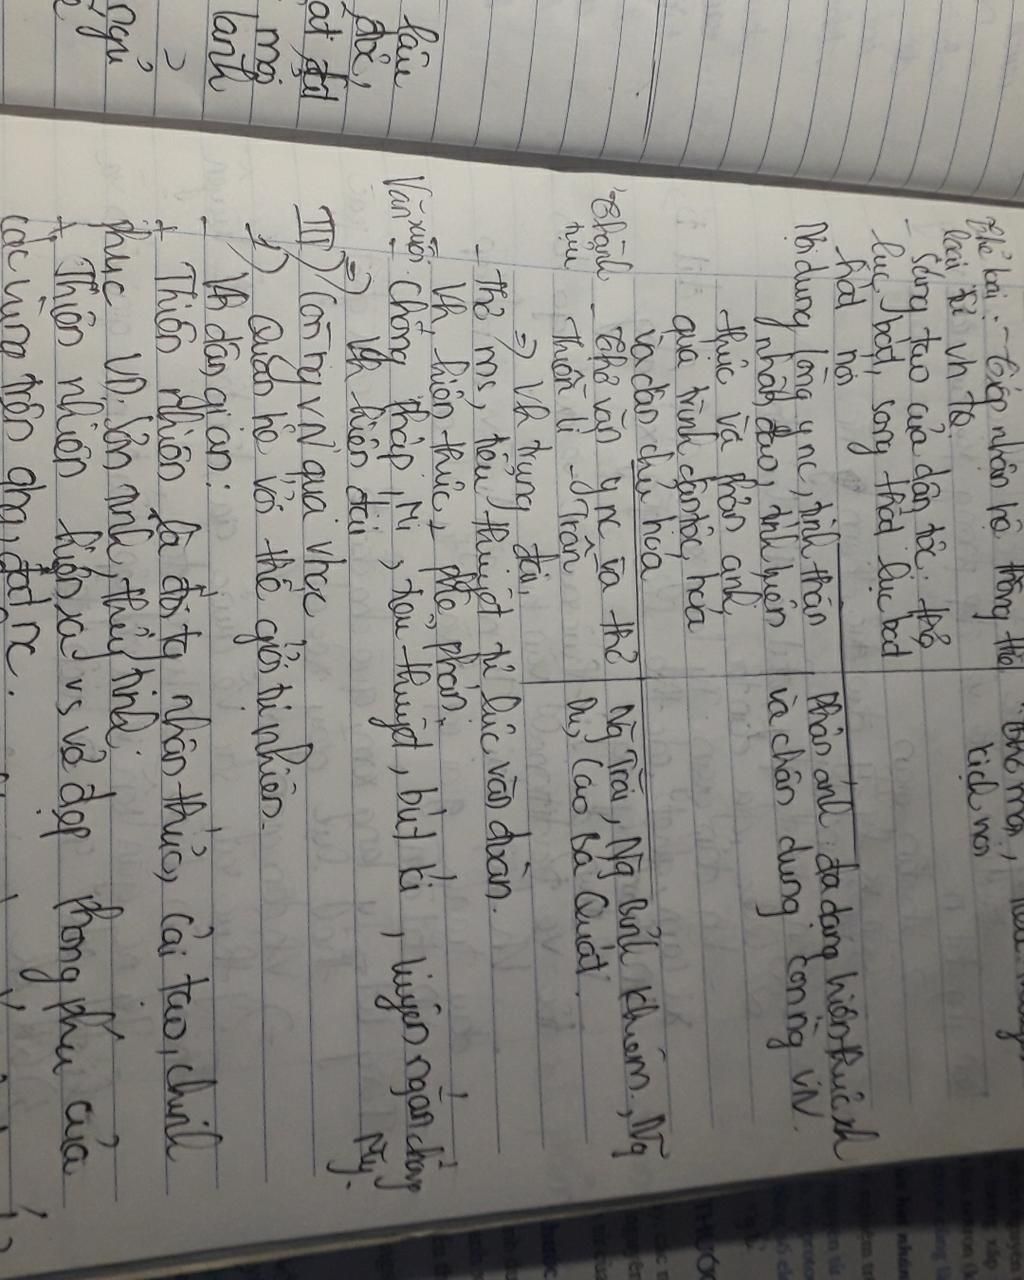 Thể loại: - tiếp nhận hệ thống thể
loại từ vh TQ
- Sáng tạo của dân tộc: thơ
lục bát, song thất lục bát
hát nói
kịch nói
Nội dung
lòng y nc, tinh thần
nhân đạo, tính hiện
thực và phản ánh
quá trình dân tộc hóa
và dân chủ hóa
Phản ánh đa dạng hiện thực xh
và chân dung con ng VN.
Thành tựu
- Thơ văn y nc và thơ
thiền Lí - Trần
=> Vh trung đại
Ng Trãi, Ng Bỉnh Khiêm, Ng
Du, Cao Bá Quát.
- Thơ ms, tiểu thuyết tự lực văn đoàn.
Vh hiện thực, phê phán.
Văn xuôi: - chống Pháp, Mĩ, tiểu thuyết, bút kí, truyện ngắn chống
Mỹ.
=> Vh hiện đại
III) Con ng VN qua vhọc
1) Quan hệ với thế giới tự nhiên.
- Vh dân gian:
+ Thiên nhiên là đối tg nhận thức, cải tạo, chinh
phục VD: Sơn tinh, thủy tinh.
+ Thiên nhiên hiện ra vs vẻ đẹp phong phú của
các vùng trên qhg, đất nc.
lâu
đất đai
mọi
lành
ngủ